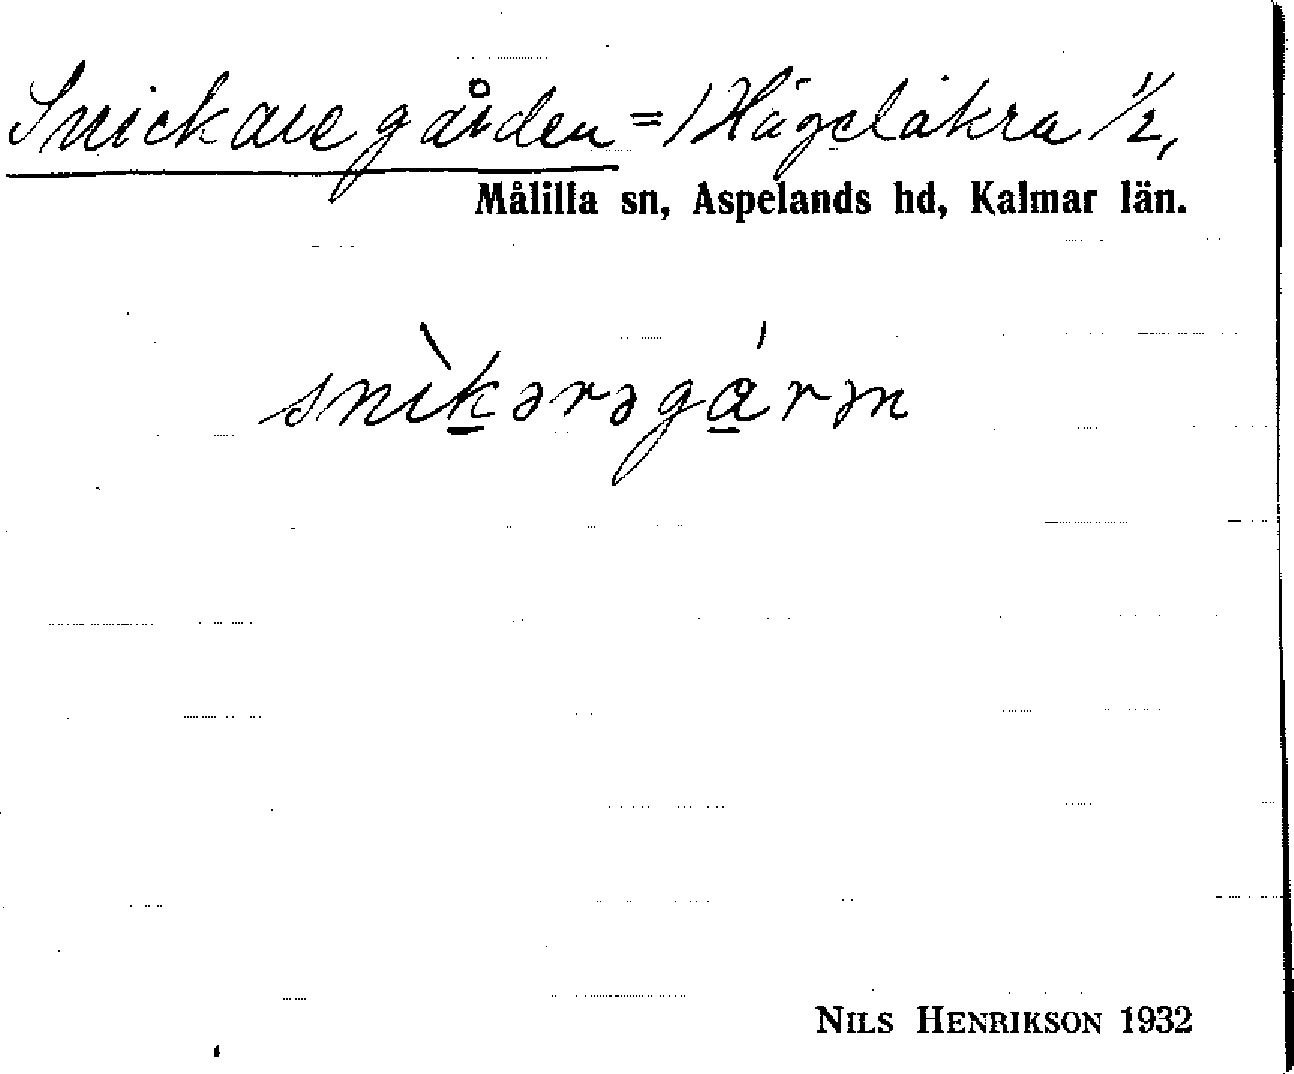 Snickaregården = Hägelåkra 1/2,
Målilla sn, Aspelands hd, Kalmar län.
snìkərəgárən
NILS HENRIKSON 1932